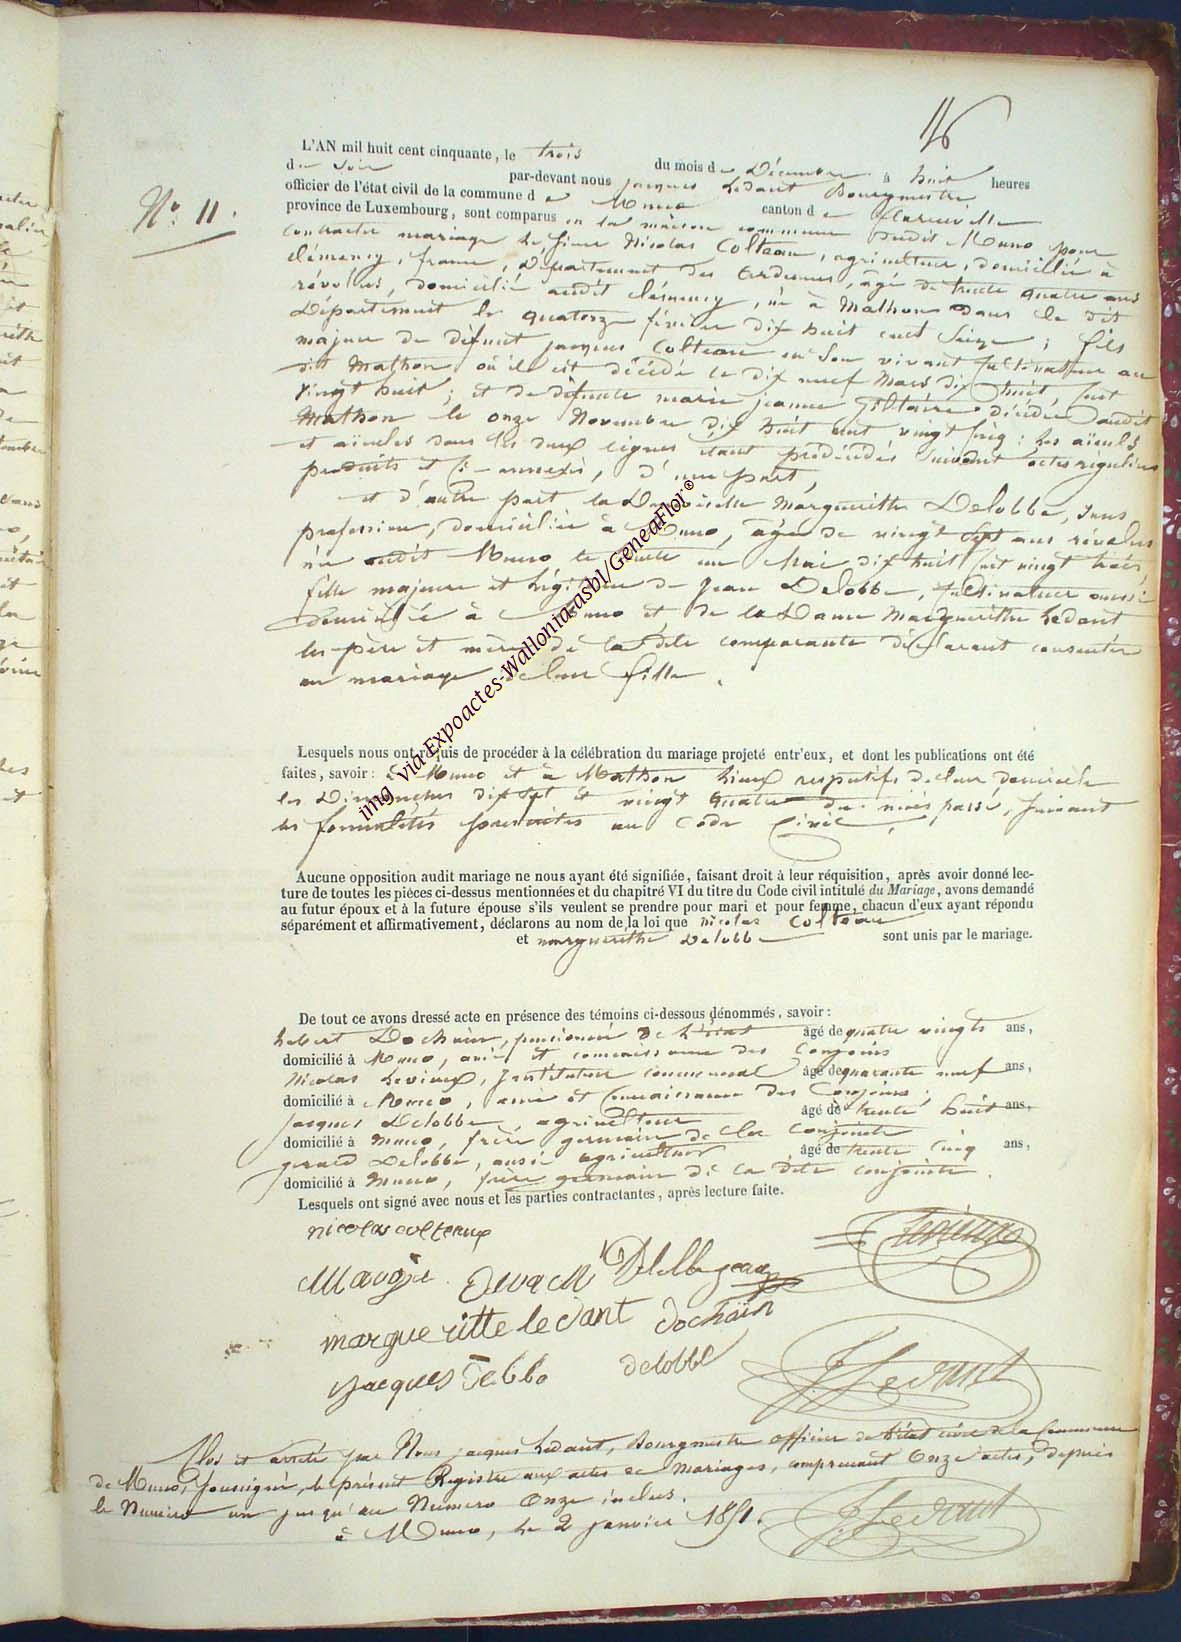 116
N.º 11.
L'AN mil huit cent cinquante, le trois du mois de Décembre à huit heures
du soir par-devant nous jacques Ledant Bourgmestre
officier de l'état civil de la commune de Muno canton de florenville
province de Luxembourg, sont comparus en la maison commune dudit Muno pour
contracter mariage le sieur Nicolas Colteau, agriculteur, domicilié à
Clémency, france, Département des Ardennes, âgé de trente quatre ans
révolus, domicilié audit Clémency, né à Mathon dans le dit
Département le quatorze février dix huit cent Seize; fils
majeur de défunt jacques Colteau en son vivant Cultivateur au
dit Mathon où il est décédé le dix neuf Mars dix huit cent
vingt huit; et de défunte marie jeanne Giltaire décédée audit
Mathon le onze Novembre dix huit cent vingt : les aïeuls
et aïeules dans les deux lignes étant prédécédés suivant actes réguliers
produits et ci-annexés, d'une part,
et d'autre part la Demoiselle Marguerithe Delobbe, sans
profession, domiciliée à Muno, âgée de vingt sept ans révolus
née audit Muno le trente un Mai dix huit cent vingt trois
fille majeure et légitime de Jean Delobbe, Cultivateur aussi
domicilié à Muno et de la Dame Marguerithe Ledant
les père et mère de la dite comparante déclarant consentir
au mariage de leur fille.
Lesquels nous ont requis de procéder à la célébration du mariage projeté entr'eux, et dont les publications ont été
faites, savoir: à Muno et à Mathon lieux respectifs de leur domicile
les Dimanches dix sept et vingt quatre du mois passé, suivant
les formalités prescrites au Code Civil,
Aucune opposition audit mariage ne nous ayant été signifiée, faisant droit à leur réquisition, après avoir donné lec-
ture de toutes les pièces ci-dessus mentionnées et du chapitré VI du titre du Code civil intitulé du Mariage, avons demandé
au futur époux et à la future épouse s'ils veulent se prendre pour mari et pour femme, chacun d'eux ayant répondu
séparément et affirmativement, déclarons au nom de la loi que nicolas Colteau
et marguerithe Delobbe sont unis par le mariage.
De tout ce avons dressé acte en présence des témoins ci-dessous dénommés, savoir:
hubert Dochain, pensionné de l'état âgé de quatre vingts ans,
domicilié à Muno, ami et connaissance des Conjoins
Nicolas Levieux, Instituteur communal âgé de quarante neuf ans,
domicilié à Muno, ami et Connaissance des Conjoins;
jacques Delobbe, agriculteur âgé de trente huit ans,
domicilié à Muno, frère germain de la Conjointe
gerard Delobbe, aussi agriculteur âgé de trente cinq ans,
domicilié à Muno, frère germain de la dite conjointe.
Lesquels ont signé avec nous et les parties contractantes, après lecture faite.
nicolas colteaux
Levieux
margueritte ledant dochain
jacques delobbe
J Ledant
Clos et arrêté par Nous jacques Ledant, Bourgmestre officier de l'état civil de la Commune
de Muno, soussigné, le présent Registre aux actes de Mariages, comprenant Onze actes, depuis
le Numéro un jusqu'au Numéro Onze inclus.
à Muno, le 2 janvier 1851.
J Ledant
img via Expoactes-Wallonia-asbl/GeneaFlor ©